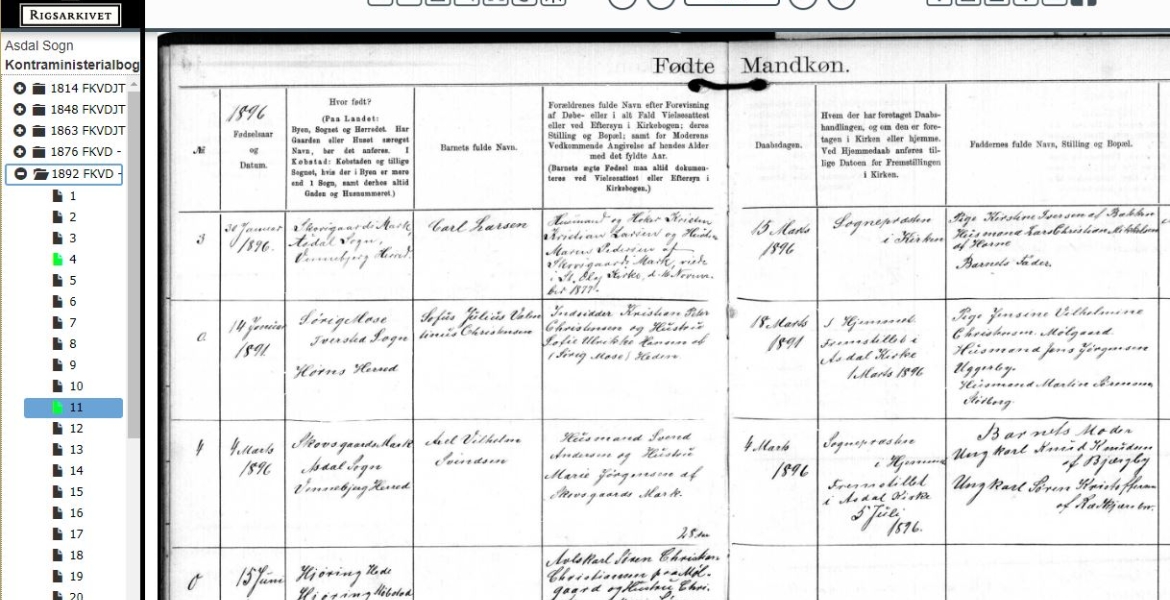 RIGSARKIVET
Asdal Sogn
Kontraministerialbog
1814 FKVDJT
1848 FKVDJT
1863 FKVDJT
1876 FKVD -
1892 FKVD -
1
2
3
4
5
6
7
8
9
10
11
12
13
14
15
16
17
18
19
20
Fødte Mandkøn.
№
1896
Fødselsaar
og
Datum.
Hvor født?
(Paa Landet:
Byen, Sognet og Herredet. Har
Gaarden eller Huset særeget
Navn, bør det anføres. I
Købstad: Købstaden og tillige
Sognet, hvis der i Byen er mere
end 1 Sogn, samt derhos altid
Gaden og Husnummeret.)
Barnets fulde Navn.
Forældrenes fulde Navn efter Forevisning
af Døbe- eller i alt Fald Vielsesattest
eller ved Eftersyn i Kirkebogen; deres
Stilling og Bopæl; samt for Moderens
Vedkommende Angivelse af hendes Alder
med det fyldte Aar.
(Barnets ægte Fødsel maa altid dokumen-
teres ved Vielsesattest eller Eftersyn i
Kirkebogen.)
Daabsdagen.
Hvem der har foretaget Daabs-
handlingen, og om den er fore-
tagen i Kirken eller hjemme.
Ved Hjemmedaab anføres til-
lige Datoen for Fremstillingen
i Kirken.
Faddernes Navn, Stilling og Bopæl.
3
Januar
1896.
Skovsgaards Mark
Asdal Sogn,
Vennebjerg Herred.
Carl Larsen
Husmand og Kristen
Kristian Larsen og Hustru
Maren Pedersen af
Skovsgaards Mark, viede
i St. Olaj Kirke, d. Novem-
ber 1877.
15 Marts
1896
Sognepræsten
i Kirken
Pige Kirstine Iversen af Bakken
Husmand Lars Christian Mikkelsen
af Horne
Barnets Fader.
0
14 Januar
1891
Sørig Mose
Tversted Sogn
Hørns Herred
Sofus Julius Valen
tinus Christensen
Indsidder Kristian Peter
Christensen og Hustru
Sofie Ulrikke Hansen af
(Sørig Mose) Heden
18 Marts
1891
i Hjemmet
Fremstillet i
Asdal Kirke
1 Marts 1896
Pige Jensine Vilhelmine
Christensen Mølgaard
Husmand Jens Jørgensen
Uggerby.
Husmand Martin Sørensen
4
4 Marts
1896
Skovsgaards Mark
Asdal Sogn
Vennebjerg Herred
Axel Vilhelm
Svendsen
Husmand Svend
Andersen og Hustru
Marie Jørgensen af
Skovsgaards Mark.
28 aar
4 Marts
1896
Sognepræsten
i Hjemmet
Fremstillet
i Asdal Kirke
5 Juli
1896.
Barnets Moder
Ungkarl Knud Knudsen
af Bjærgby
Ungkarl Søren Kristoffersen
af
0
15 Juni
Hjøring Hede
Hjøring Købstad
Avlskarl Søren Christian
Christiansen fra Møl-
gaard og Hustru Chri-